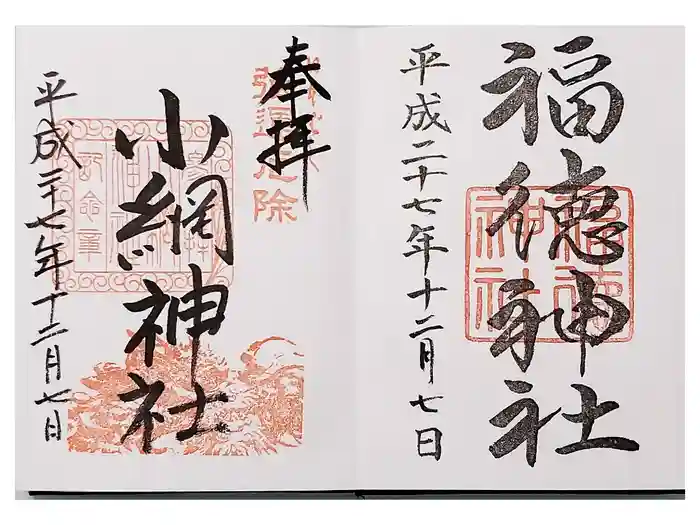 福徳神社
平成二十七年十二月七日
奉拝
小網神社
平成二十七年十二月七日
神社